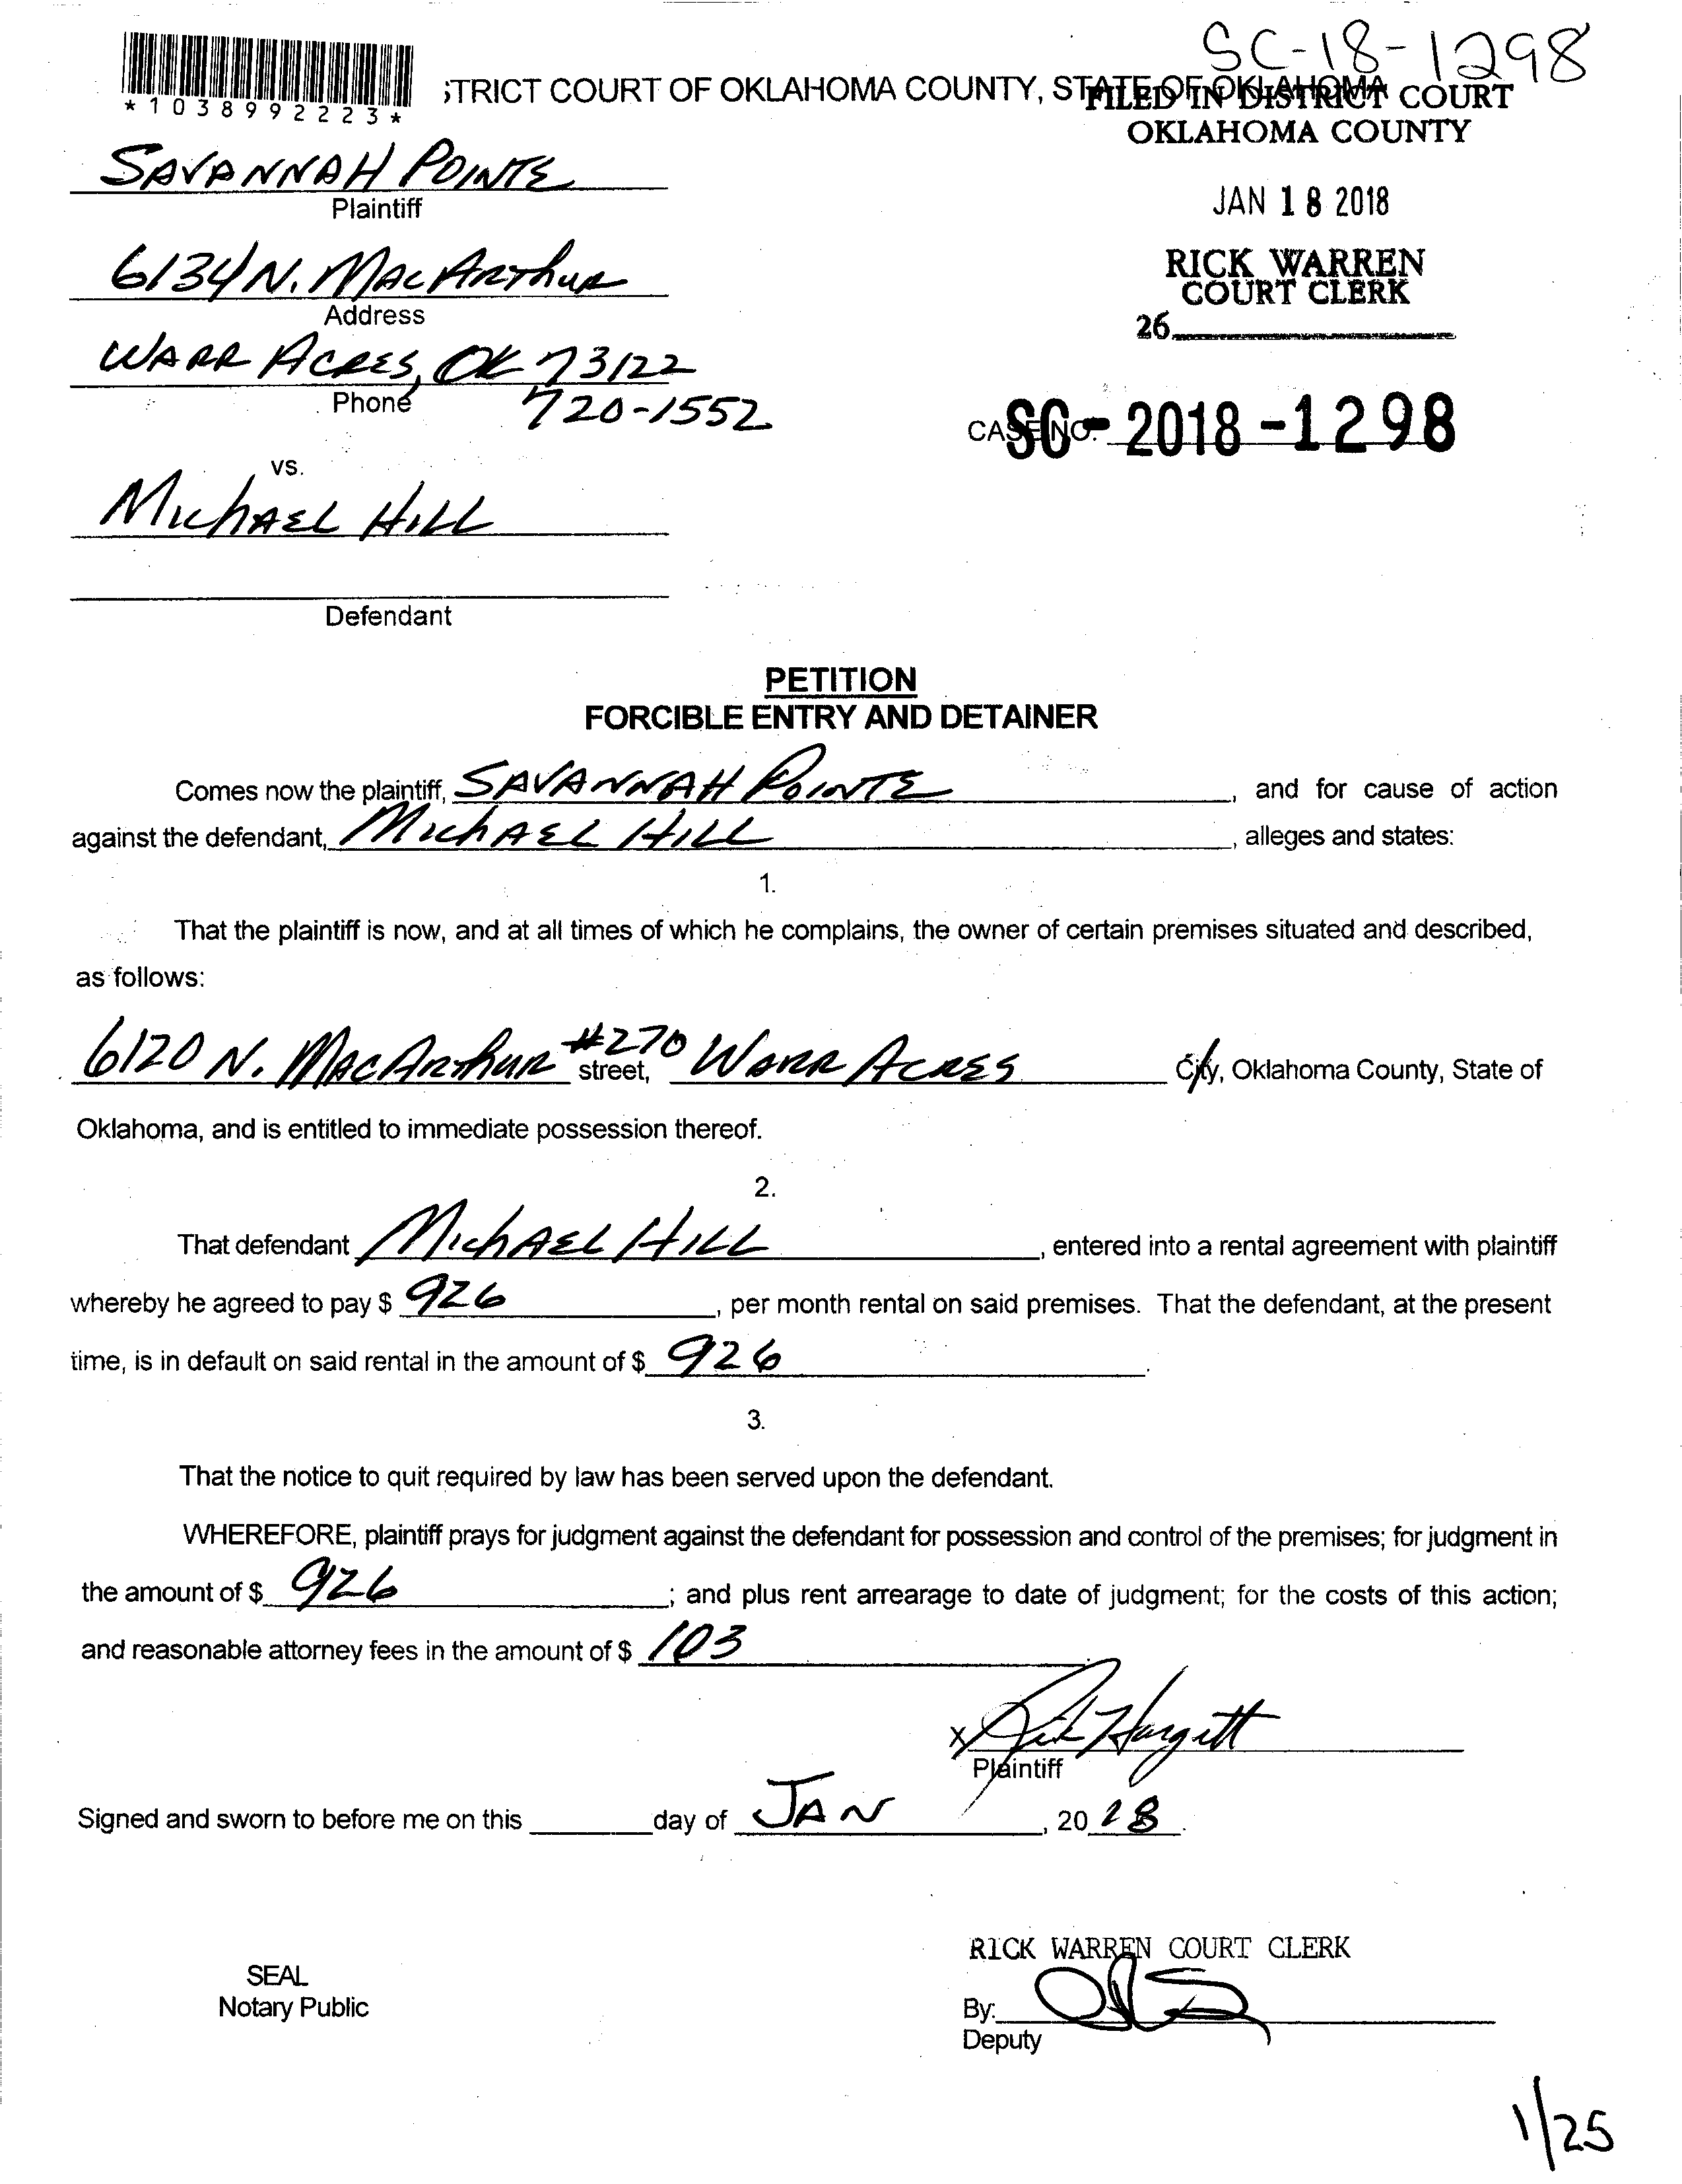 SC-18-1298
STRICT COURT OF OKLAHOMA COUNTY, STATE OF OKLAHOMA
FILED IN DISTRICT COURT
OKLAHOMA COUNTY
*1038992223*
SAVANNAH POINTE
Plaintiff
JAN 18 2018
6134 N. MacArthur
Address
RICK WARREN
COURT CLERK
26
WARR ACRES, OK 73122
Phone 720-1552
CASE NO. SC-2018-1298
vs.
Michael Hill
Defendant
PETITION
FORCIBLE ENTRY AND DETAINER
Comes now the plaintiff, SAVANNAH POINTE, and for cause of action
against the defendant, Michael Hill, alleges and states:
1.
That the plaintiff is now, and at all times of which he complains, the owner of certain premises situated and described,
as follows:
6120 N. MacArthur #270 street, Warr Acres City, Oklahoma County, State of
Oklahoma, and is entitled to immediate possession thereof.
2.
That defendant Michael Hill, entered into a rental agreement with plaintiff
whereby he agreed to pay $ 926, per month rental on said premises. That the defendant, at the present
time, is in default on said rental in the amount of $ 926.
3.
That the notice to quit required by law has been served upon the defendant.
WHEREFORE, plaintiff prays for judgment against the defendant for possession and control of the premises; for judgment in
the amount of $ 926; and plus rent arrearage to date of judgment; for the costs of this action;
and reasonable attorney fees in the amount of $ 103
X Rick Hargett
Plaintiff
Signed and sworn to before me on this ____ day of JAN, 2018.
RICK WARREN COURT CLERK
SEAL
Notary Public
By:
Deputy
1/25